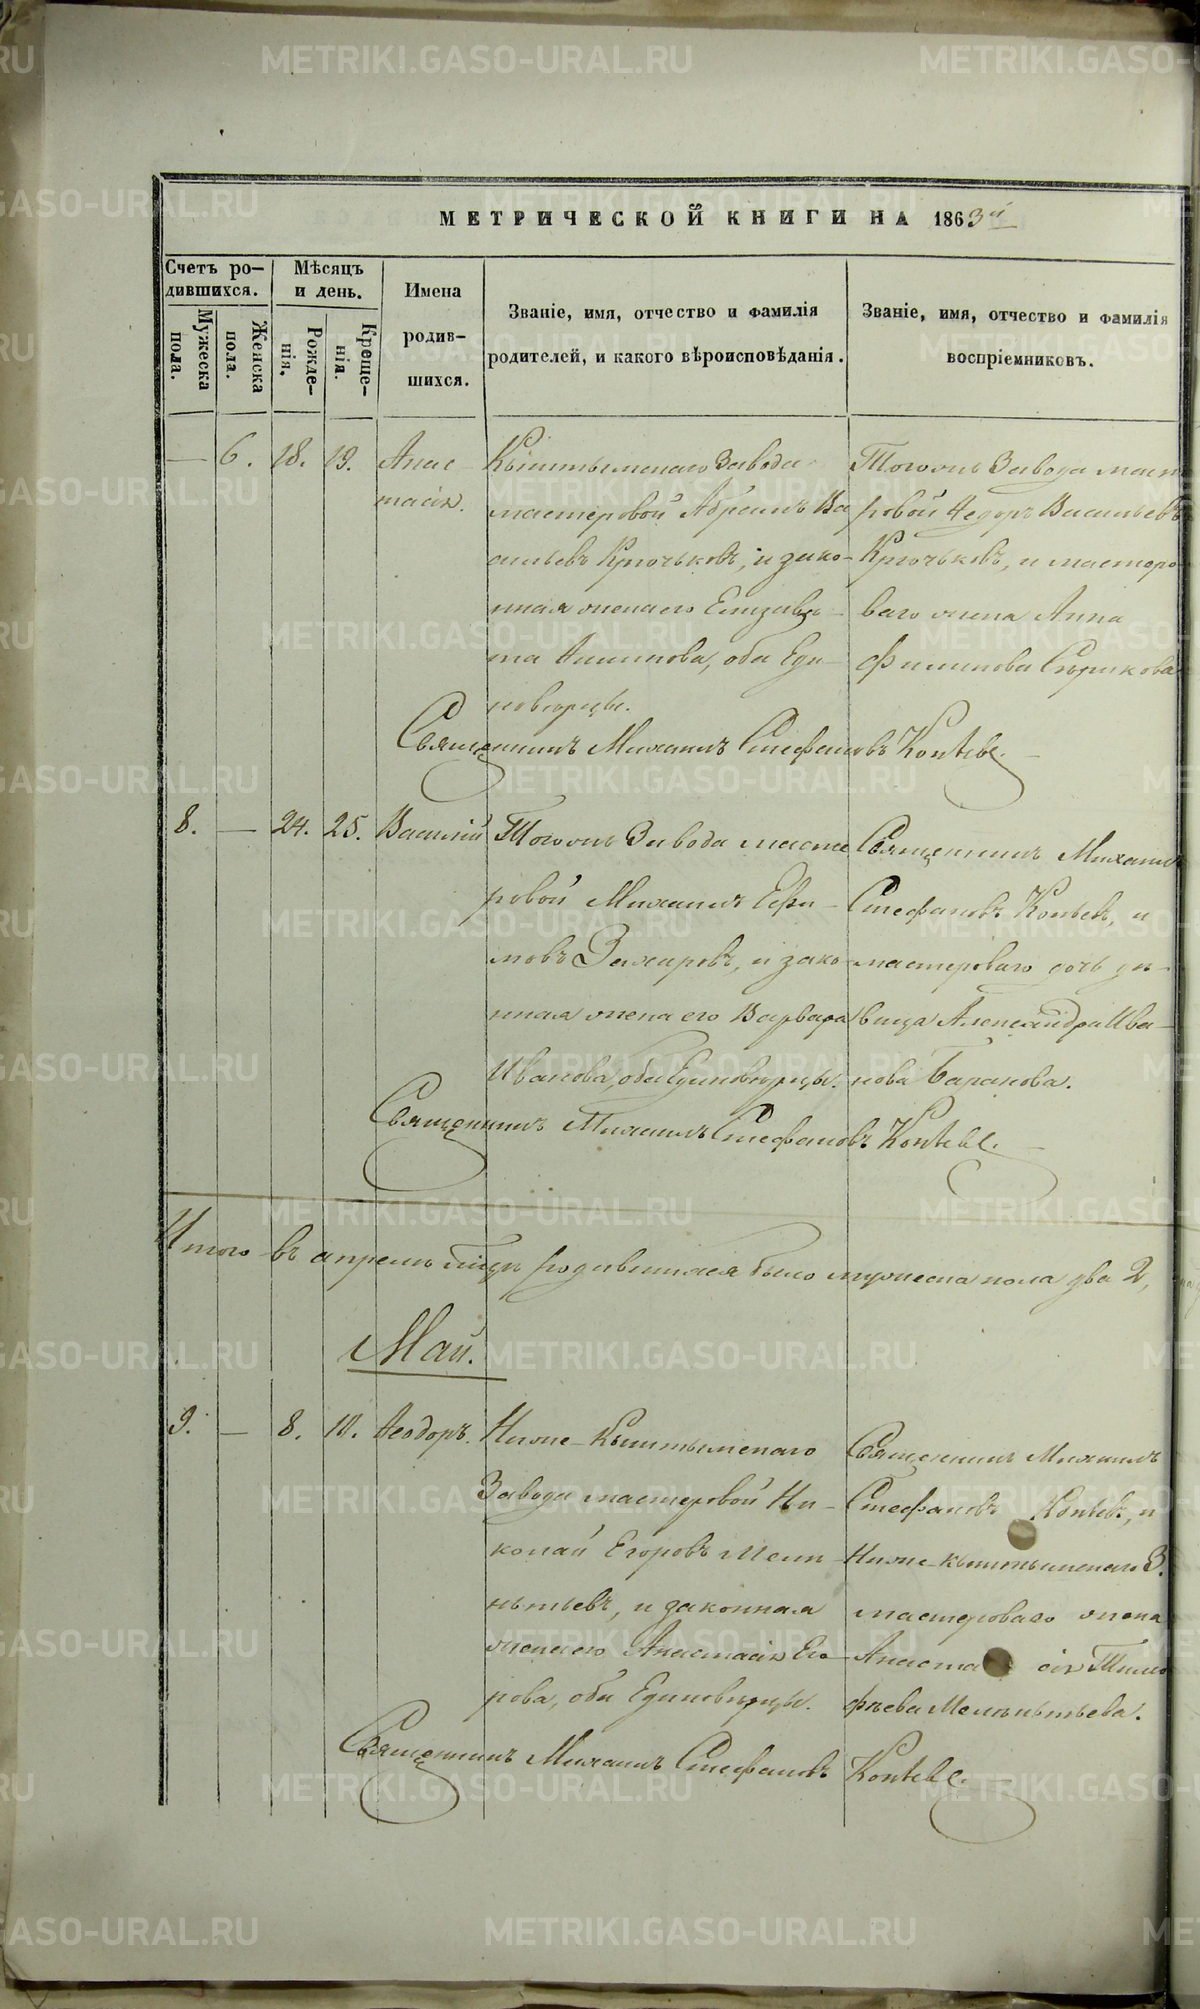 МЕТРИЧЕСКОЙ КНИГИ НА 1863й
Счетъ ро-
дившихся.
Мужеска
пола.
Женска
пола.
Мѣсяцъ
и день.
Рожде-
нія.
Креще-
нія.
Имена
родив-
шихся.
Званіе, имя, отчество и фамилія
родителей, и какого вѣроисповѣданія.
Званіе, имя, отчество и фамилія
воспріемниковъ.
— 6. 18. 19. Анас-
тасія.
Кыштымскаго Завода
мастеровой Абрамъ Ва
сильевъ Крючьковъ, и зако-
нная жена его Елизаве-
та Анимпова, оба Еди-
новѣрцы.
Тогожъ Завода масте
ровой Ѳедоръ Васильевъ
Крючьковъ, и мастеро
ваго жена Анна
Филипова Сырикова
Священникъ Михаилъ Стефановъ Коптевъ.
8. — 24. 25. Василій
Тогожъ Завода масте
ровой Михаилъ Ефи-
мовъ Захаровъ, и зако-
нная жена его Варвара
Иванова, оба Единовѣрцы.
Священникъ Михаилъ
Стефановъ Коптевъ, и
мастероваго дочь дѣ-
вица Александра Ива-
нова Баранова.
Священникъ Михаилъ Стефановъ Коптевъ.
Итого въ апрелѣ родившихся было мужеска пола два 2,
Май.
9. — 8. 10. Ѳеодоръ.
Нижне-Кыштымскаго
Завода мастеровой Ни-
колай Егоровъ Мелен-
тьевъ, и законная
жена его Анастасія Его-
рова, оба Единовѣрцы.
Священникъ Михаилъ
Стефановъ Коптевъ, и
Нижне-Кыштымскаго З.
мастероваго жена
Анастасія Тимо
фѣева Мелентьева.
Священникъ Михаилъ Стефановъ Коптевъ.
METRIKI.GASO-URAL.RU